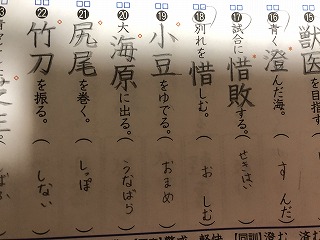 ⑮ 獣医を目指す
⑯ 青く澄んだ海。（すんだ）
⑰ 試合に惜敗する。（せきはい）
⑱ 別れを惜しむ。（おしむ）
⑲ 小豆をゆでる。（おまめ）
⑳ 大海原に出る。（うなばら）
㉑ 尻尾を巻く。（しっぽ）
㉒ 竹刀を振る。（しない）